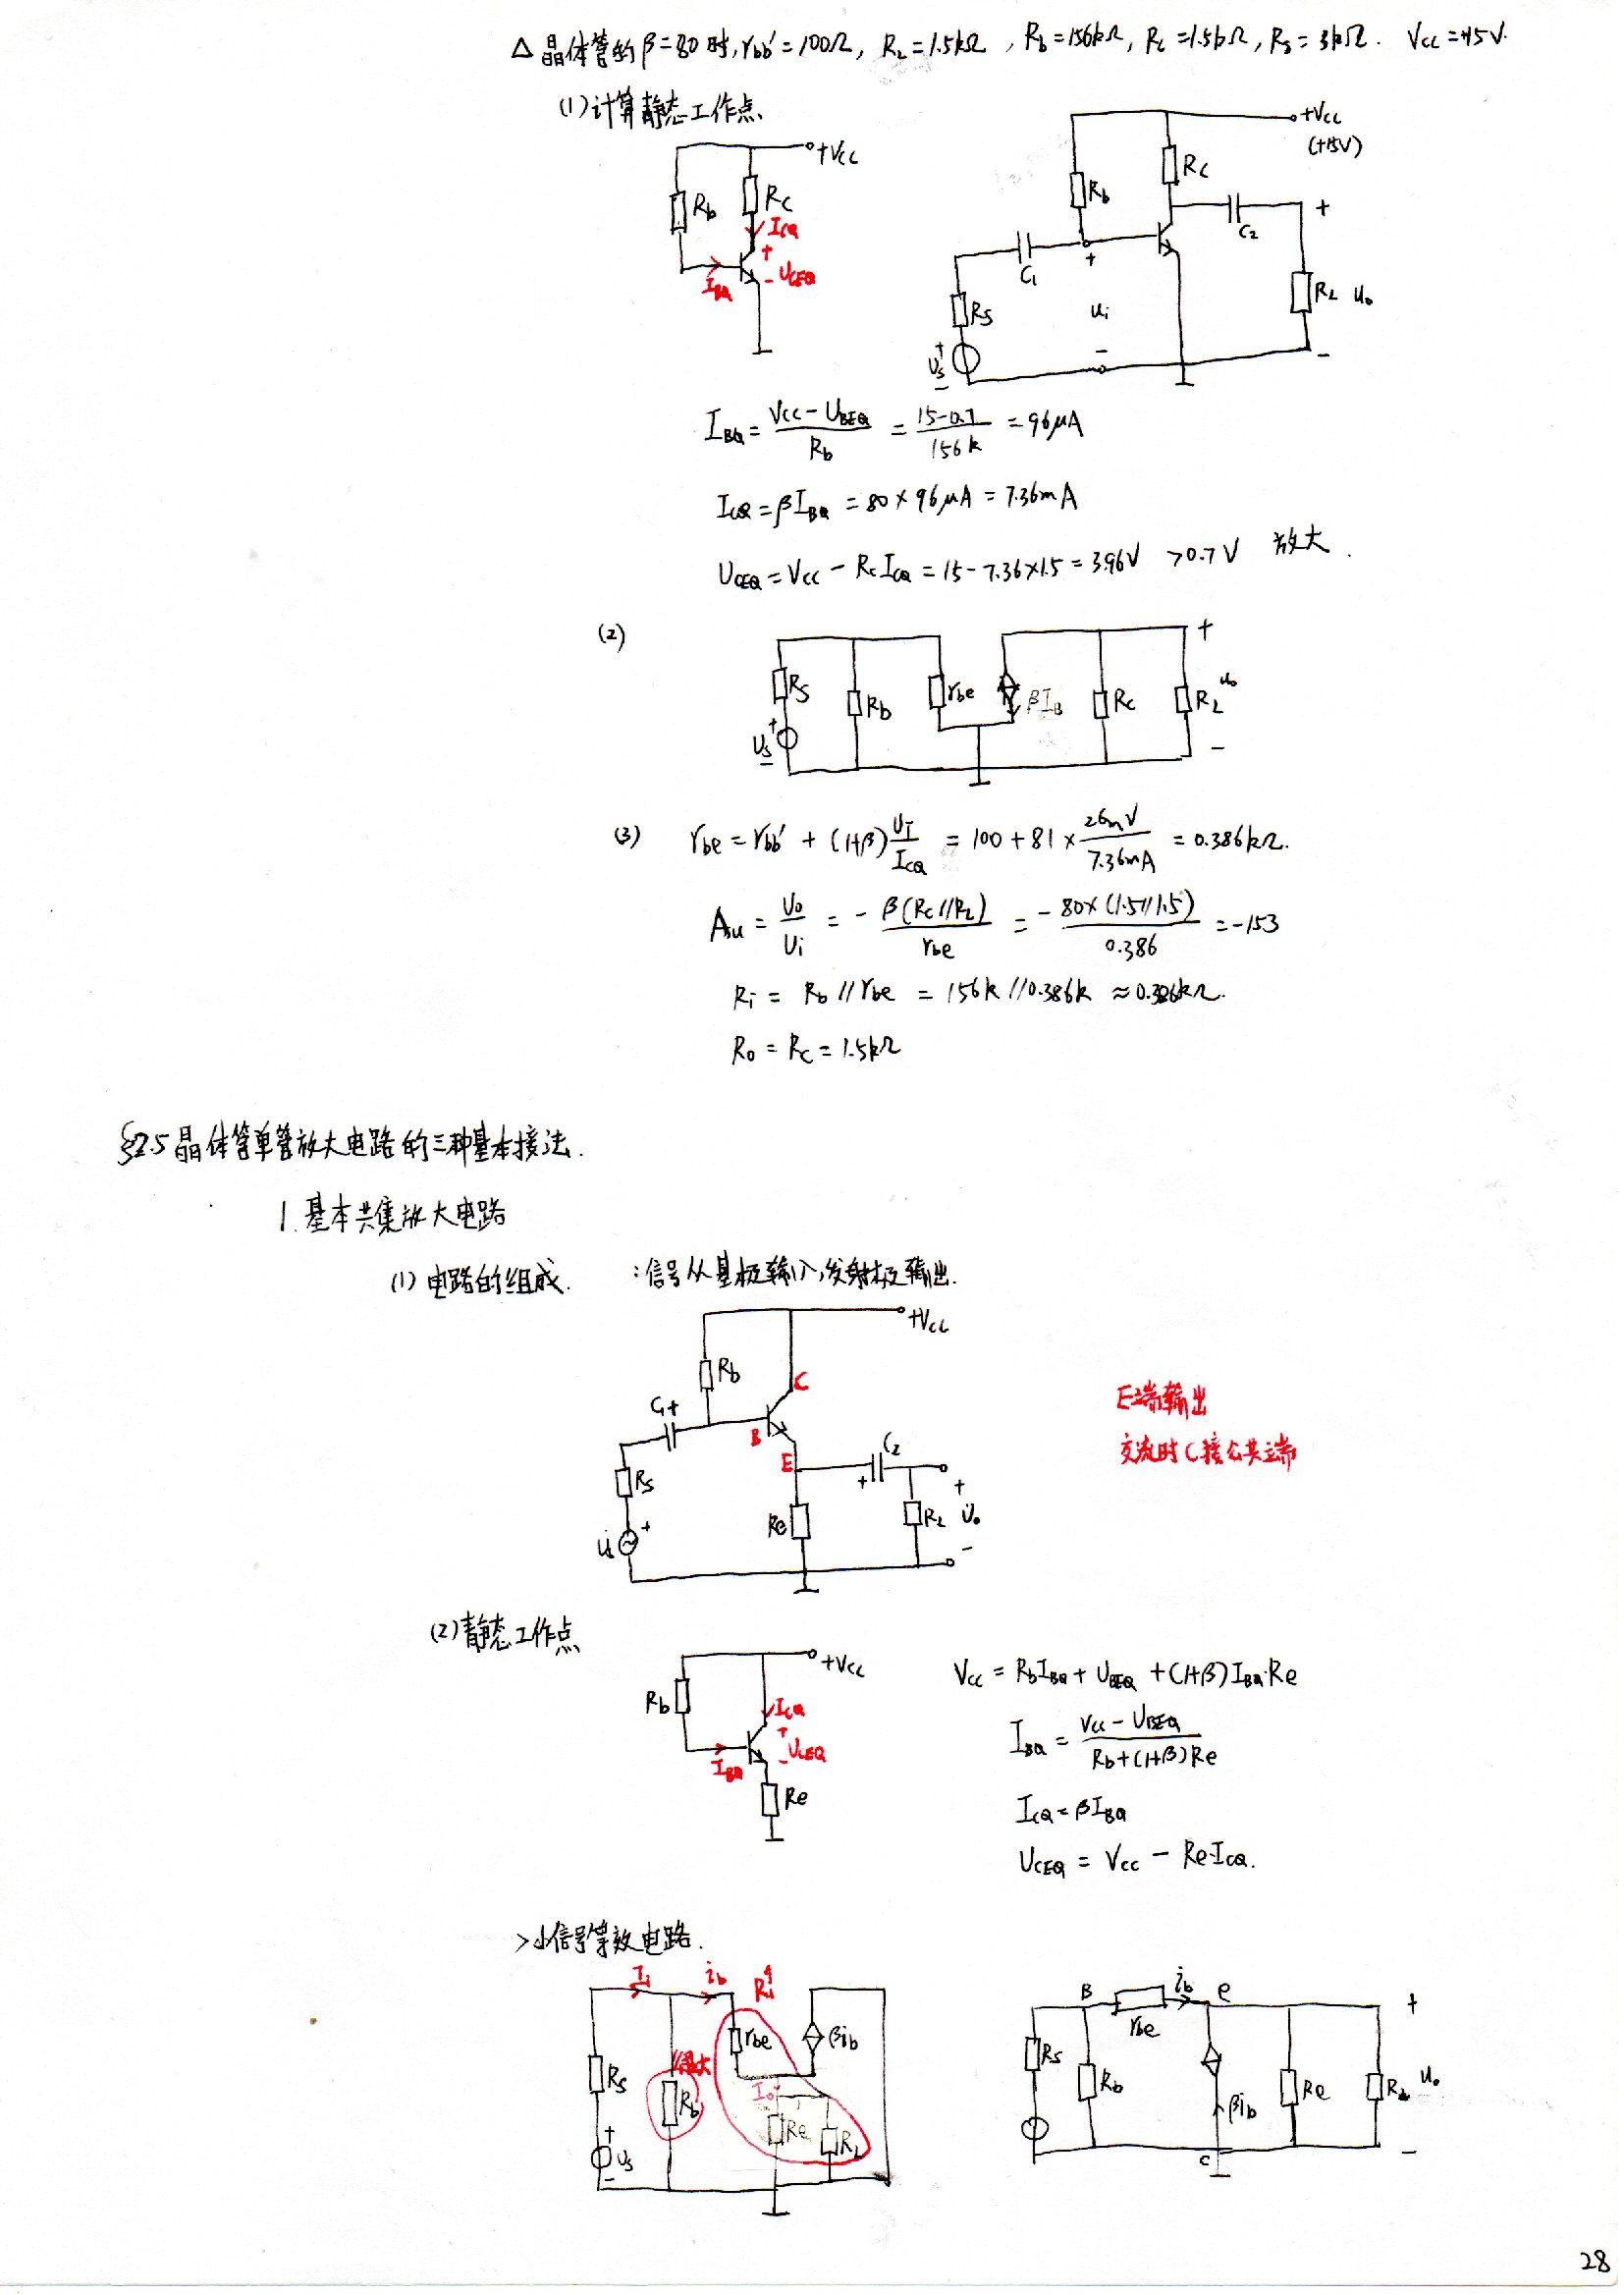 △晶体管的β=80时, rbb'=100Ω, RL=1.5kΩ, Rb=156kΩ, Rc=1.5kΩ, Rs=3kΩ. Vcc=+15V.
(1)计算静态工作点.
+Vcc
Rb
Rc
ICQ
+
- UCEQ
IBQ
+Vcc
(+15V)
Rc
Rb
C1
C2
+
+
Rs
Ui
RL Uo
Us
+
-
-
-
IBQ = (Vcc - UBEQ)/Rb = (15-0.7)/156k = 96μA
ICQ = βIBQ = 80×96μA = 7.36mA
UCEQ = Vcc - RcICQ = 15-7.36×1.5 = 3.96V >0.7V 放大.
(2)
Rs
Rb
rbe
βIB
Rc
RL
+
Uo
-
Us
+
-
(3) rbe = rbb' + (1+β)UT/ICQ = 100+81×26mV/7.36mA = 0.386kΩ.
Au = Uo/Ui = -β(Rc//RL)/rbe = -80×(1.5//1.5)/0.386 = -153
Ri = Rb//rbe = 156k//0.386k ≈0.386kΩ.
Ro = Rc = 1.5kΩ
§2.5 晶体管单管放大电路的三种基本接法.
1.基本共集放大电路
(1)电路的组成. :信号从基极输入,发射极输出.
+Vcc
Rb
C
C1+
B
E
C2
+
Rs
Re
RL
+
U̇o
-
Us
+
E端输出
交流时C接公共端
(2)静态工作点
+Vcc
Rb
ICQ
+
- UCEQ
IBQ
Re
Vcc = RbIBQ + UBEQ + (1+β)IBQ·Re
IBQ = (Vcc - UBEQ)/(Rb+(1+β)Re)
ICQ = βIBQ
UCEQ = Vcc - Re·ICQ.
>小信号等效电路.
Ii
ib
Ri'
rbe
βib
很大
Rs
Rb
Io
Re
RL
+
Us
-
B
rbe
ib
e
+
Rs
Rb
βib
Re
RL
Uo
-
c
28